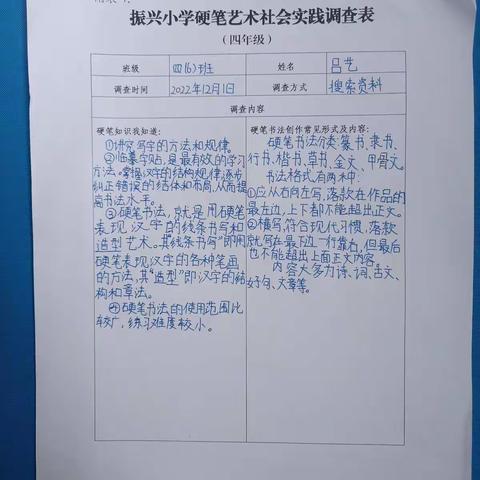 振兴小学硬笔艺术社会实践调查表
（四年级）
班级 四(6)班 姓名 吕艺
调查时间 2022年12月1日 调查方式 搜索资料
调查内容
硬笔知识我知道:
①讲究写字的方法和规律。
②临摹字贴,是最有效的学习
方法。掌握汉字的结构规律,逐步
纠正错误的结体和布局,从而提
高书法水平。
③硬笔书法,就是用硬笔
表现汉字的"线条书写和
造型艺术。其"线条书写"即用
硬笔表现汉字的各种笔画
的方法,其"造型"即汉字的结
构和章法。
④硬笔书法的使用范围比
较广,练习难度较小。
硬笔书法创作常见形式及内容:
硬笔书法分类:篆书、隶书、
行书、楷书、草书、金文、甲骨文。
书法格式有两种:
①应从右向左写,落款在作品的
最左边,上下都不能超出正文。
②横写,符合现代习惯,落款
就写在最下边一行靠右,但最后
也不能超出上面正文内容。
内容大多为诗、词、古文、
好句、文章等。